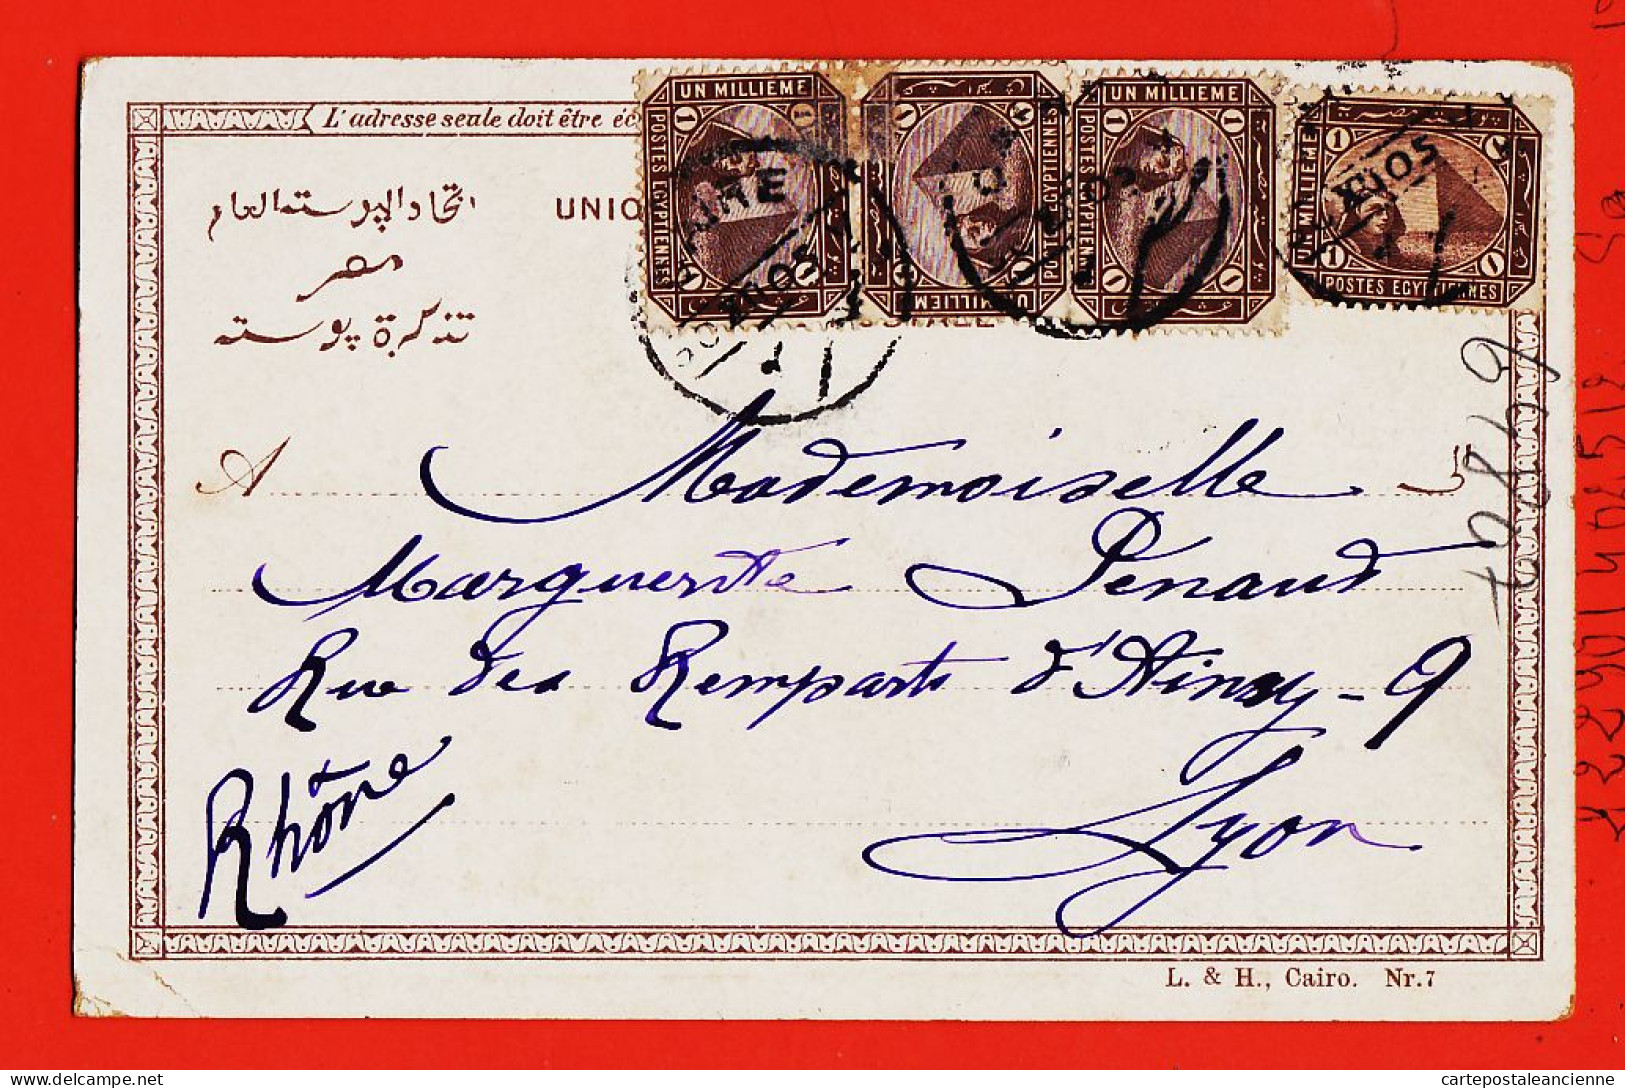 L'adresse seule doit être
اتحاد البوسته العام
UNIO
مصر
تذكرة بوسته
UN MILLIEME
POSTES EGYPTIENNES
1 1 1 1
UN MILLIEME
POSTES EGYPTIENNES
1 1 1 1
UN MILLIEME
POSTES EGYPTIENNES
1 1 1 1
UN MILLIEME
POSTES EGYPTIENNES
1 1 1 1
A Mademoiselle الى
Marguerite Penaud
Rue des Remparts d'Ainay - 9
Lyon
Rhône
L. & H., Cairo. Nr. 7
cartepostaleancienne